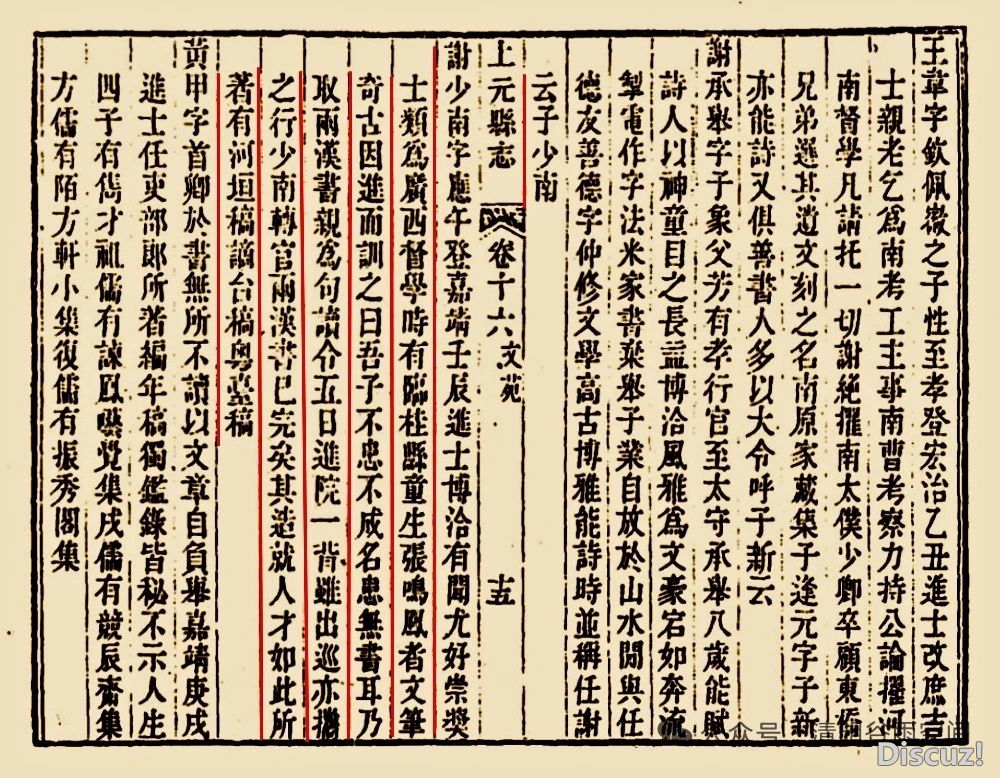 王韋字欽佩徽之子性至孝登宏治乙丑進士改庶吉
士親老乞為南考工主事南曹考察力持公論擢河
南督學凡請托一切謝絕擢南太僕少卿卒顧東橋
兄弟選其遺文刻之名南原家藏集子逢元字子新
亦能詩又俱善書人多以大令呼子新云
謝承舉字子象父芳有孝行官至太守承舉八歲能賦
詩人以神童目之長益博洽風雅為文豪宕如奔流
掣電作字法米家書棄舉子業自放於山水間與任
德友善德字仲修文學高古博雅能詩時並稱任謝
云子少南
上元縣志 卷十六文苑 十五
謝少南字應午登嘉靖壬辰進士博洽有聞尤好崇獎
士類為廣西督學時有臨桂縣童生張鳴鳳者文筆
奇古因進而訓之曰吾子不患不成名患無書耳乃
取兩漢書親為句讀令五日進院一背雖出巡亦攜
之行少南轉官兩漢書已完矣其造就人才如此所
著有河垣稿謫台稿粵臺稿
黃甲字首卿於書無所不讀以文章自負舉嘉靖庚戌
進士任吏部郎所著編年稿獨鑑錄皆秘不示人生
四子有儁才祖儒有諫鳳噪覺集戌儒有競辰齋集
方儒有陌方軒小集復儒有振秀閣集
Discuz!